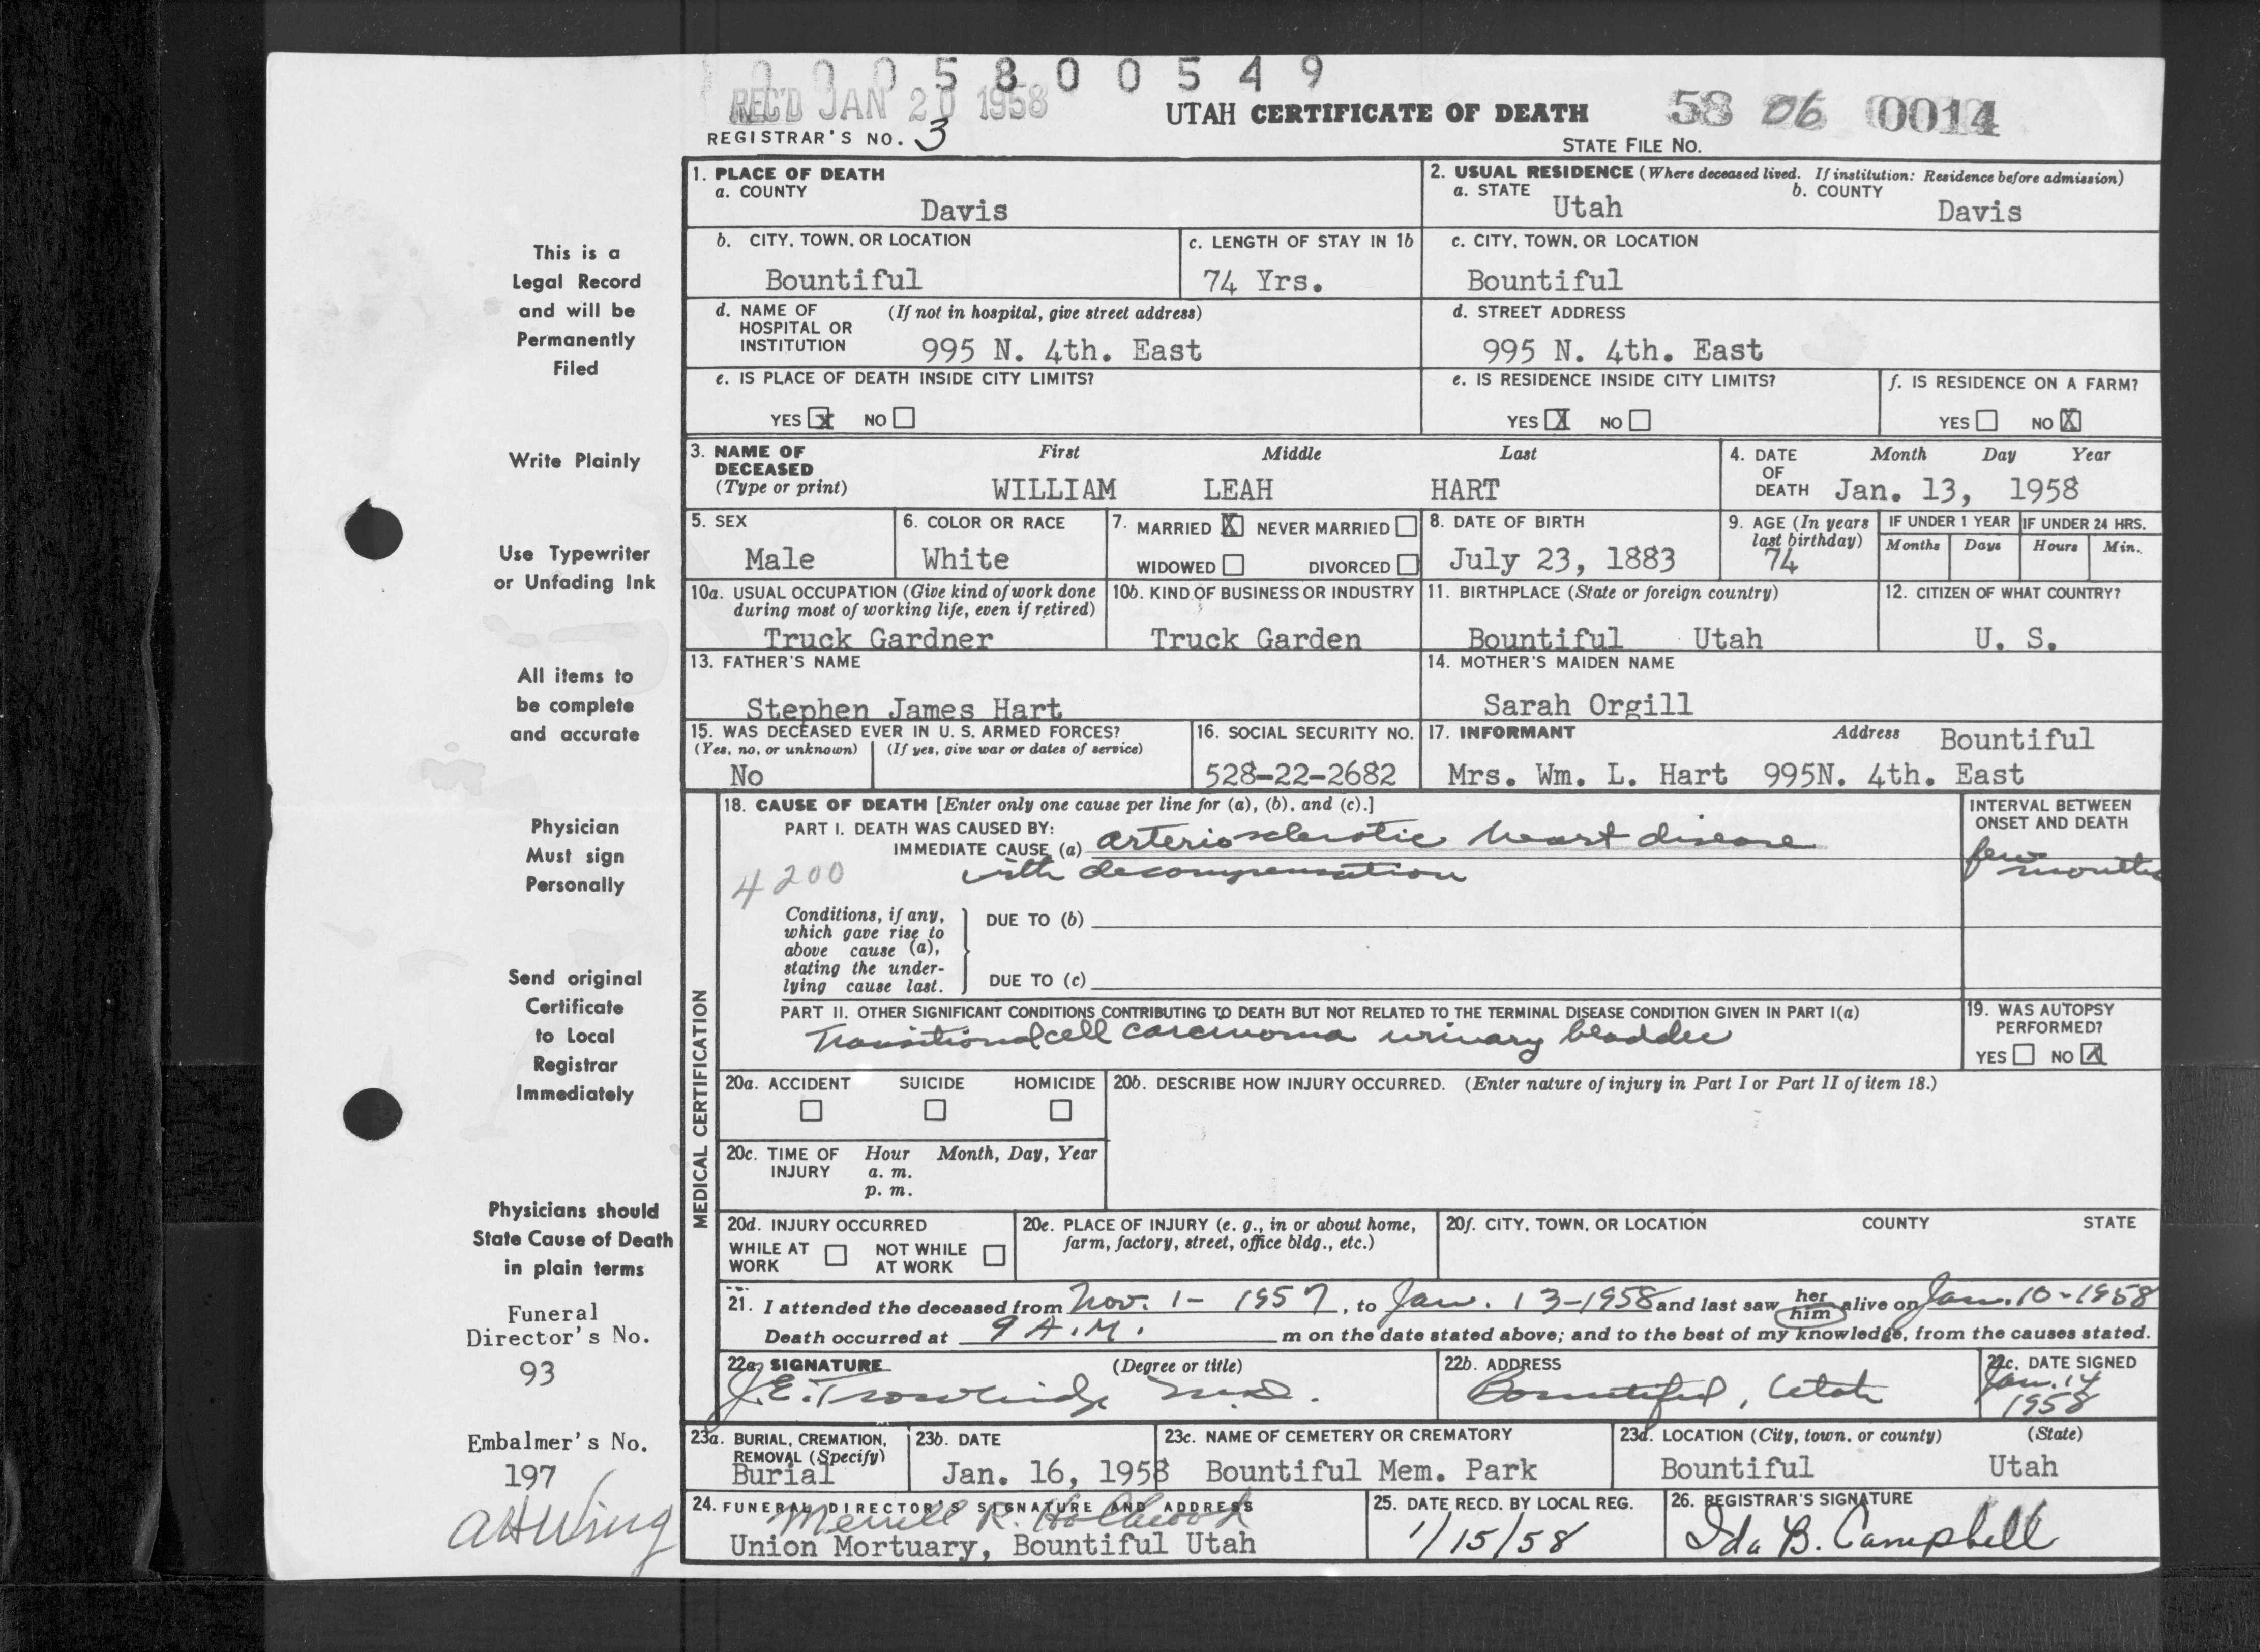 0 0 0 5 8 0 0 5 4 9
REC'D JAN 20 1958
UTAH CERTIFICATE OF DEATH
58 06 0014
REGISTRAR'S NO. 3
STATE FILE NO.
1. PLACE OF DEATH
a. COUNTY
Davis
2. USUAL RESIDENCE (Where deceased lived. If institution: Residence before admission)
a. STATE Utah b. COUNTY Davis
This is a
Legal Record
and will be
Permanently
Filed
b. CITY, TOWN, OR LOCATION
Bountiful
c. LENGTH OF STAY IN 1b
74 Yrs.
c. CITY, TOWN, OR LOCATION
Bountiful
d. NAME OF HOSPITAL OR INSTITUTION (If not in hospital, give street address)
995 N. 4th. East
d. STREET ADDRESS
995 N. 4th. East
e. IS PLACE OF DEATH INSIDE CITY LIMITS?
YES X NO
e. IS RESIDENCE INSIDE CITY LIMITS?
YES X NO
f. IS RESIDENCE ON A FARM?
YES NO X
Write Plainly
3. NAME OF DECEASED (Type or print)
First Middle Last
WILLIAM LEAH HART
4. DATE OF DEATH Month Day Year
Jan. 13, 1958
Use Typewriter
or Unfading Ink
5. SEX
Male
6. COLOR OR RACE
White
7. MARRIED X NEVER MARRIED
WIDOWED DIVORCED
8. DATE OF BIRTH
July 23, 1883
9. AGE (In years last birthday)
74
IF UNDER 1 YEAR
Months Days
IF UNDER 24 HRS.
Hours Min.
10a. USUAL OCCUPATION (Give kind of work done during most of working life, even if retired)
Truck Gardner
10b. KIND OF BUSINESS OR INDUSTRY
Truck Garden
11. BIRTHPLACE (State or foreign country)
Bountiful Utah
12. CITIZEN OF WHAT COUNTRY?
U. S.
All items to
be complete
and accurate
13. FATHER'S NAME
Stephen James Hart
14. MOTHER'S MAIDEN NAME
Sarah Orgill
15. WAS DECEASED EVER IN U. S. ARMED FORCES?
(Yes, no, or unknown) (If yes, give war or dates of service)
No
16. SOCIAL SECURITY NO.
528-22-2682
17. INFORMANT Address Bountiful
Mrs. Wm. L. Hart 995N. 4th. East
Physician
Must sign
Personally
MEDICAL CERTIFICATION
18. CAUSE OF DEATH [Enter only one cause per line for (a), (b), and (c).]
PART I. DEATH WAS CAUSED BY:
IMMEDIATE CAUSE (a) arteriosclerotic heart disease
4200 with decompensation
INTERVAL BETWEEN ONSET AND DEATH
few months
Conditions, if any,
which gave rise to
above cause (a),
stating the under-
lying cause last.
DUE TO (b)
DUE TO (c)
Send original
Certificate
to Local
Registrar
Immediately
PART II. OTHER SIGNIFICANT CONDITIONS CONTRIBUTING TO DEATH BUT NOT RELATED TO THE TERMINAL DISEASE CONDITION GIVEN IN PART I(a)
Transitional cell carcinoma urinary bladder
19. WAS AUTOPSY PERFORMED?
YES NO X
20a. ACCIDENT SUICIDE HOMICIDE
20b. DESCRIBE HOW INJURY OCCURRED. (Enter nature of injury in Part I or Part II of item 18.)
20c. TIME OF INJURY Hour Month, Day, Year
a. m.
p. m.
Physicians should
State Cause of Death
in plain terms
20d. INJURY OCCURRED
WHILE AT WORK NOT WHILE AT WORK
20e. PLACE OF INJURY (e. g., in or about home, farm, factory, street, office bldg., etc.)
20f. CITY, TOWN, OR LOCATION COUNTY STATE
21. I attended the deceased from Nov. 1- 1957, to Jan. 13-1958 and last saw her him alive on Jan. 10-1958
Death occurred at 9 A.M. m on the date stated above; and to the best of my knowledge, from the causes stated.
Funeral
Director's No.
93
22a. SIGNATURE (Degree or title)
J. E. Trowbridge M.D.
22b. ADDRESS
Bountiful, Utah
22c. DATE SIGNED
Jan. 14
1958
Embalmer's No.
197
23a. BURIAL, CREMATION, REMOVAL (Specify)
Burial
23b. DATE
Jan. 16, 1958
23c. NAME OF CEMETERY OR CREMATORY
Bountiful Mem. Park
23d. LOCATION (City, town, or county) (State)
Bountiful Utah
24. FUNERAL DIRECTOR'S SIGNATURE AND ADDRESS
Merrill R. Holbrook
Union Mortuary, Bountiful Utah
25. DATE RECD. BY LOCAL REG.
1/15/58
26. REGISTRAR'S SIGNATURE
Ida B. Campbell